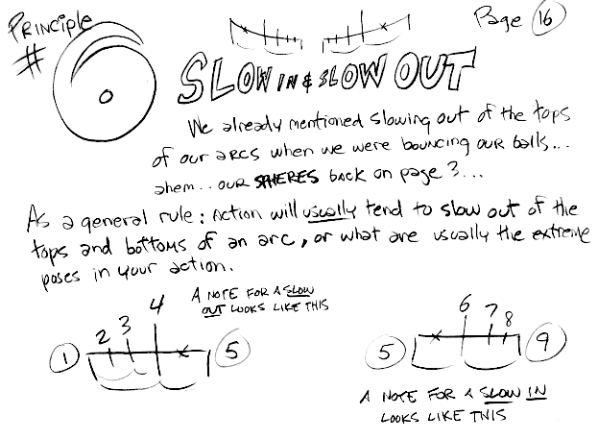 Principle
# 6
Page 16
SLOW IN & SLOW OUT
We already mentioned slowing out of the tops
of our arcs when we were bouncing our balls...
ahem.. our SPHERES back on page 3...
As a general rule: Action will usually tend to slow out of the
tops and bottoms of an arc, or what are usually the extreme
poses in your action.
A NOTE FOR A SLOW
OUT LOOKS LIKE THIS
1 2 3 4 5
5 6 7 8 9
A NOTE FOR A SLOW IN
LOOKS LIKE THIS